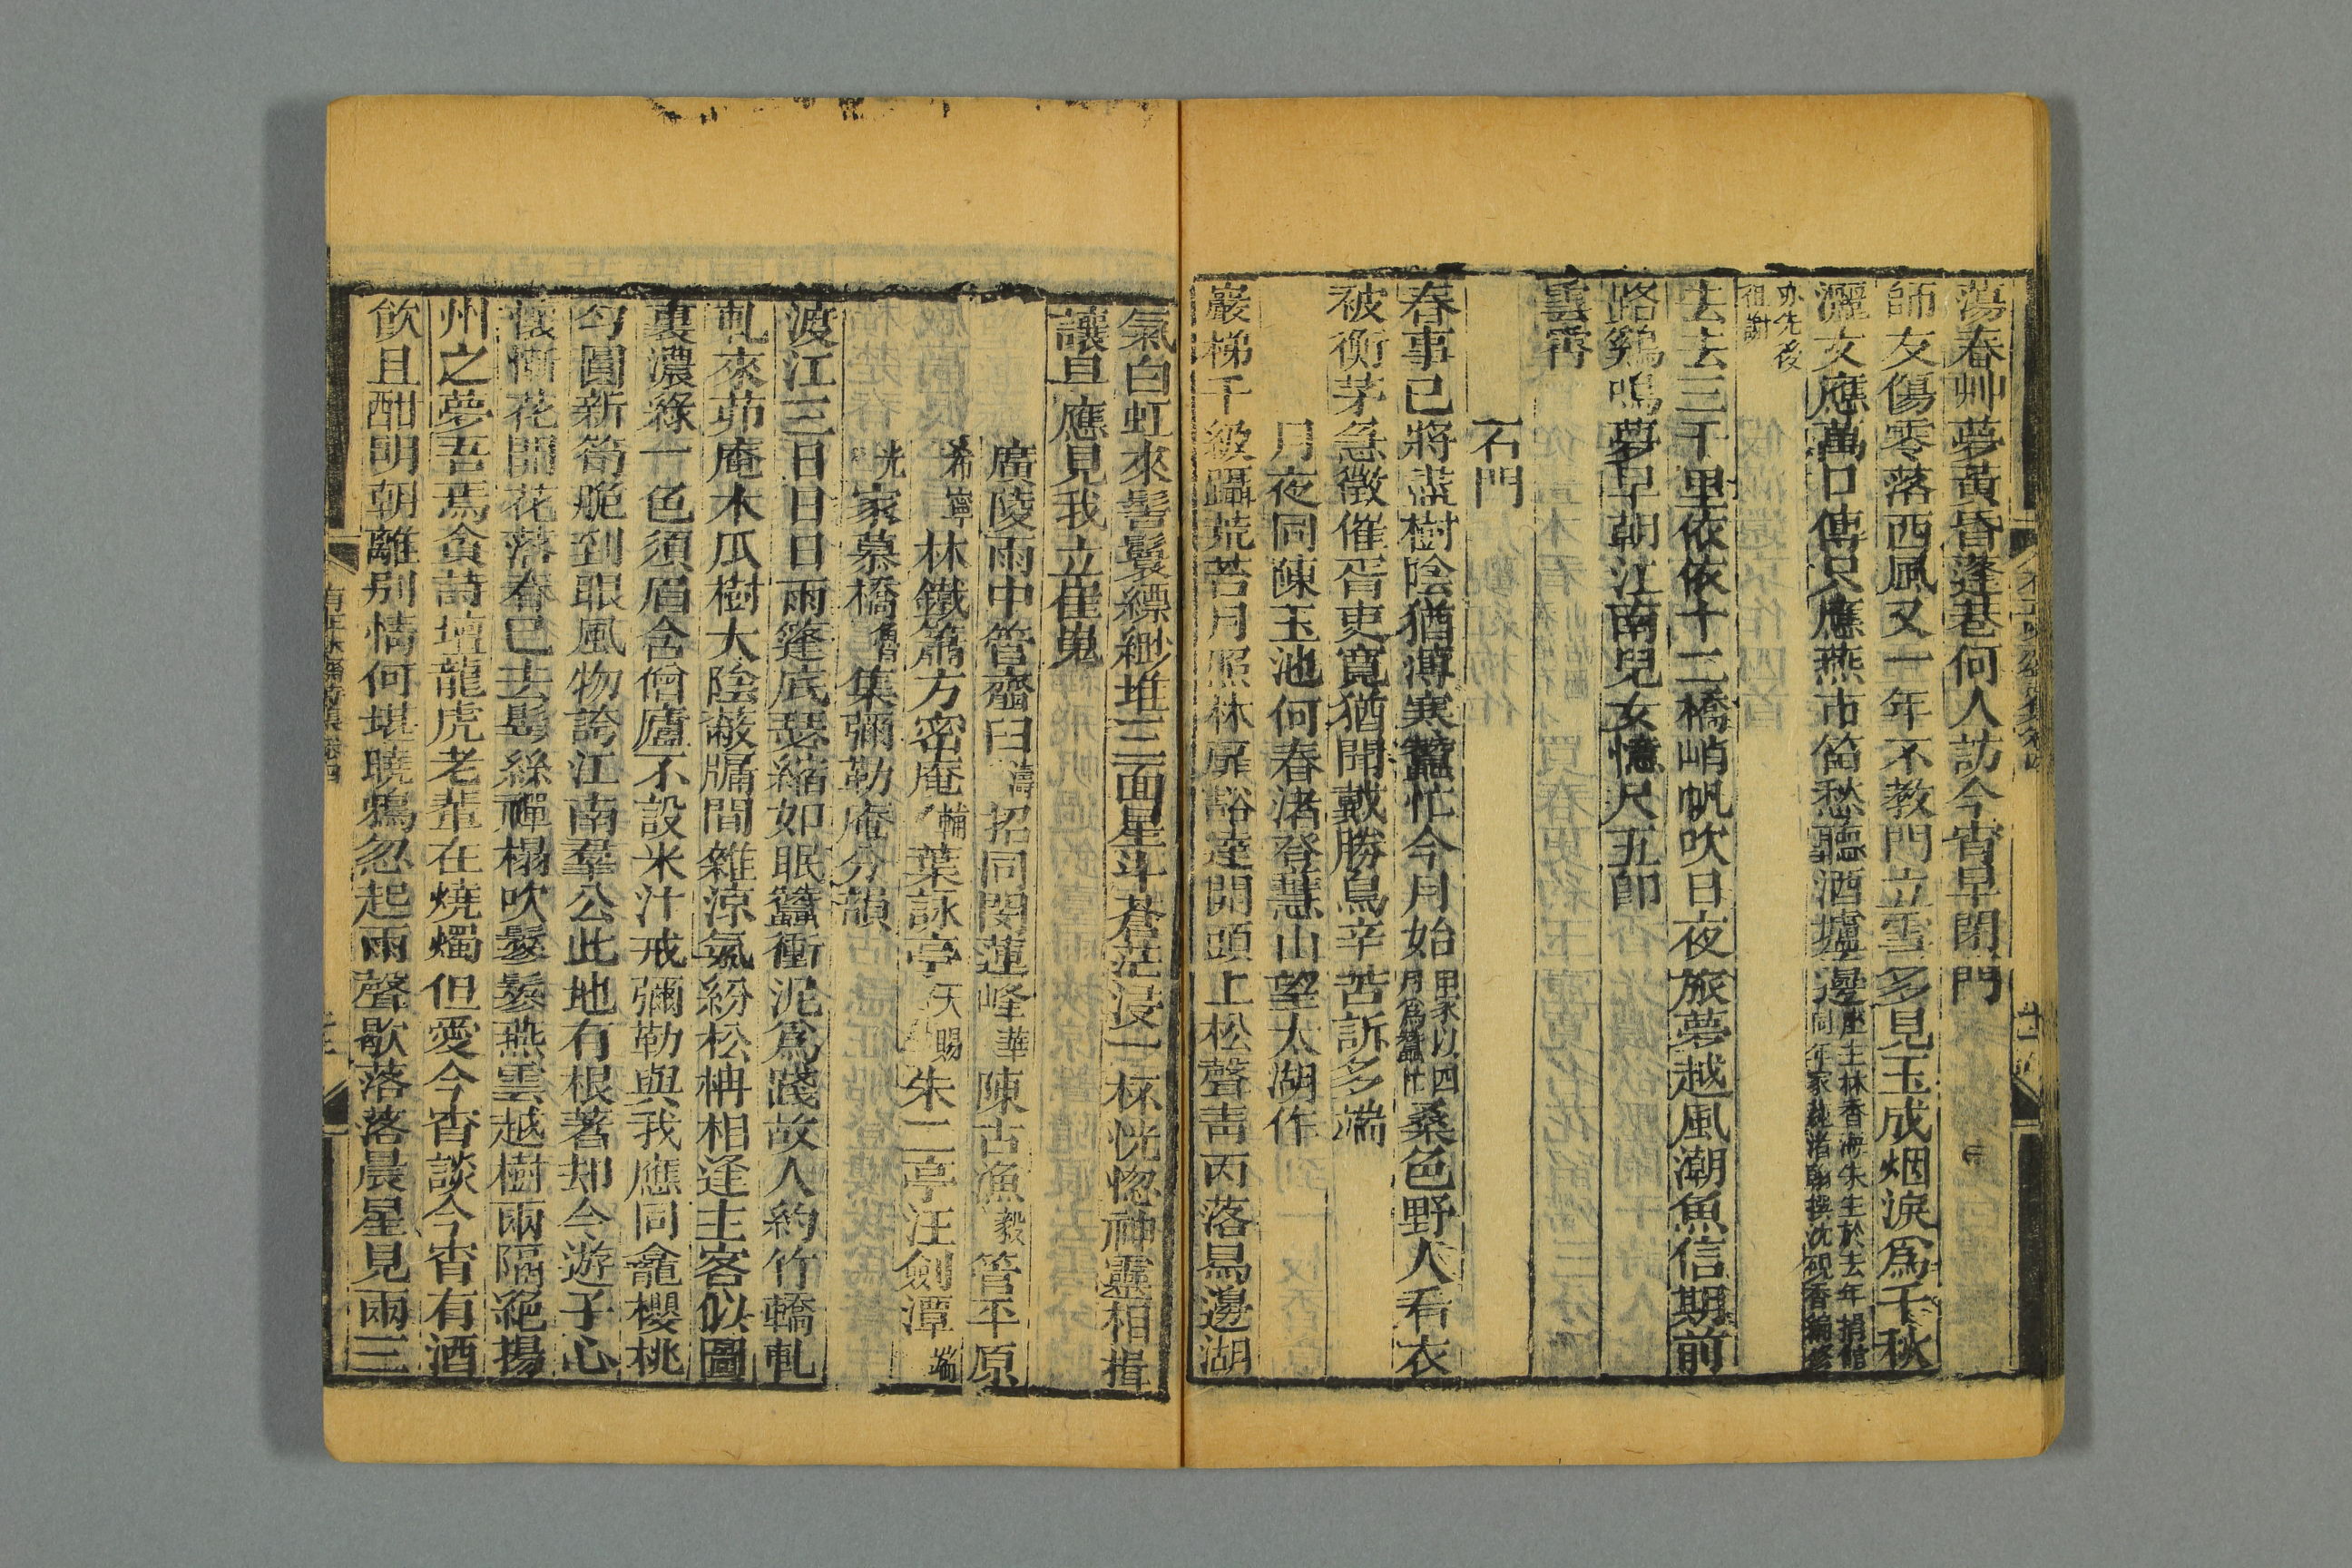 蕩春艸夢黃昏蓬巷何人訪今宵早閉門
師友傷零落西風又一年不教門立雪多見玉成烟淚為千秋
灑文應萬口傳只應燕市筑愁聽酒壚邊座主林香海朱生於去年捐館
同年家蓮渚聯撰沈硯香編修
亦先後
徂謝
去去三千里依依十二橋峭帆吹日夜旅夢越風潮魚信期前
路鷄鳴夢早朝江南兒女憶尺五卽
雲霄
石門
春事已將盡樹陰猶薄寒蠶忙今月始田家以四
月為蠶忙桑色野人看衣
被衡茅急徵催胥吏寬猶聞戴勝鳥辛苦訴多端
月夜同陳玉池何春渚登慧山望太湖作
巖梯千級躡荒苔月照林扉豁達開頭上松聲青丙落舄邊湖
氣白虹來髻鬟縹緲堆三面星斗蒼茫浸一杯恍惚神靈相揖
讓且應見我立崔嵬
廣陵雨中管齋臼濤招同閔蓮峰華陳古漁毅管平原
希寧林鐵簫方密庵輔葉詠亭天賜朱二亭汪劍潭端
光家慕橋魯集彌勒庵分韻
渡江三日日日雨篷底瑟縮如眠蠶衝泥為踐故人約竹轎軋
軋來茆庵木瓜樹大陰蔽牖間雜涼氣紛松枏相逢主客似圖
裏濃綠一色須眉含僧廬不設米汁戒彌勒與我應同龕櫻桃
勻圓新筍脆到眼風物誇江南羣公此地有根著却今遊子心
懷慚花開花落春已去髩絲禪榻吹鬖鬖燕雲越樹兩隔絕揚
州之夢吾焉貪詩壇龍虎老輩在燒燭但愛今宵談今宵有酒
飲且酣明朝離別情何堪曉鴉忽起雨聲歇落落晨星見兩三